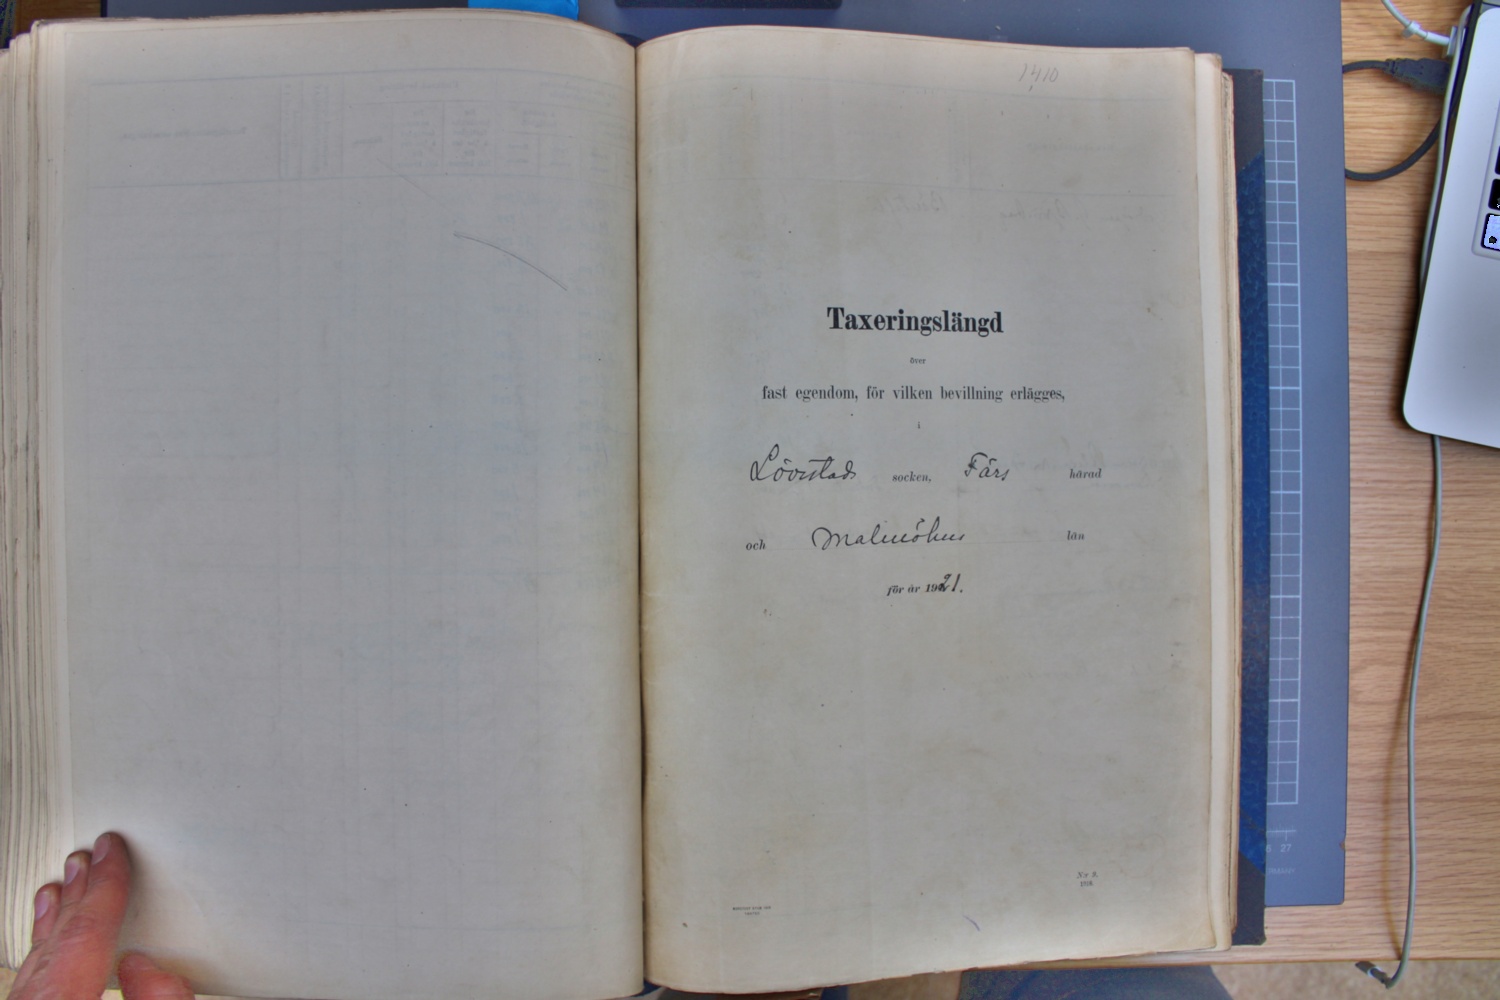 1410
Taxeringslängd
över
fast egendom, för vilken bevillning erlägges,
i
Lövestads socken, Färs härad
och Malmöhus län
för år 1921.
N:r 9.
1918.
27